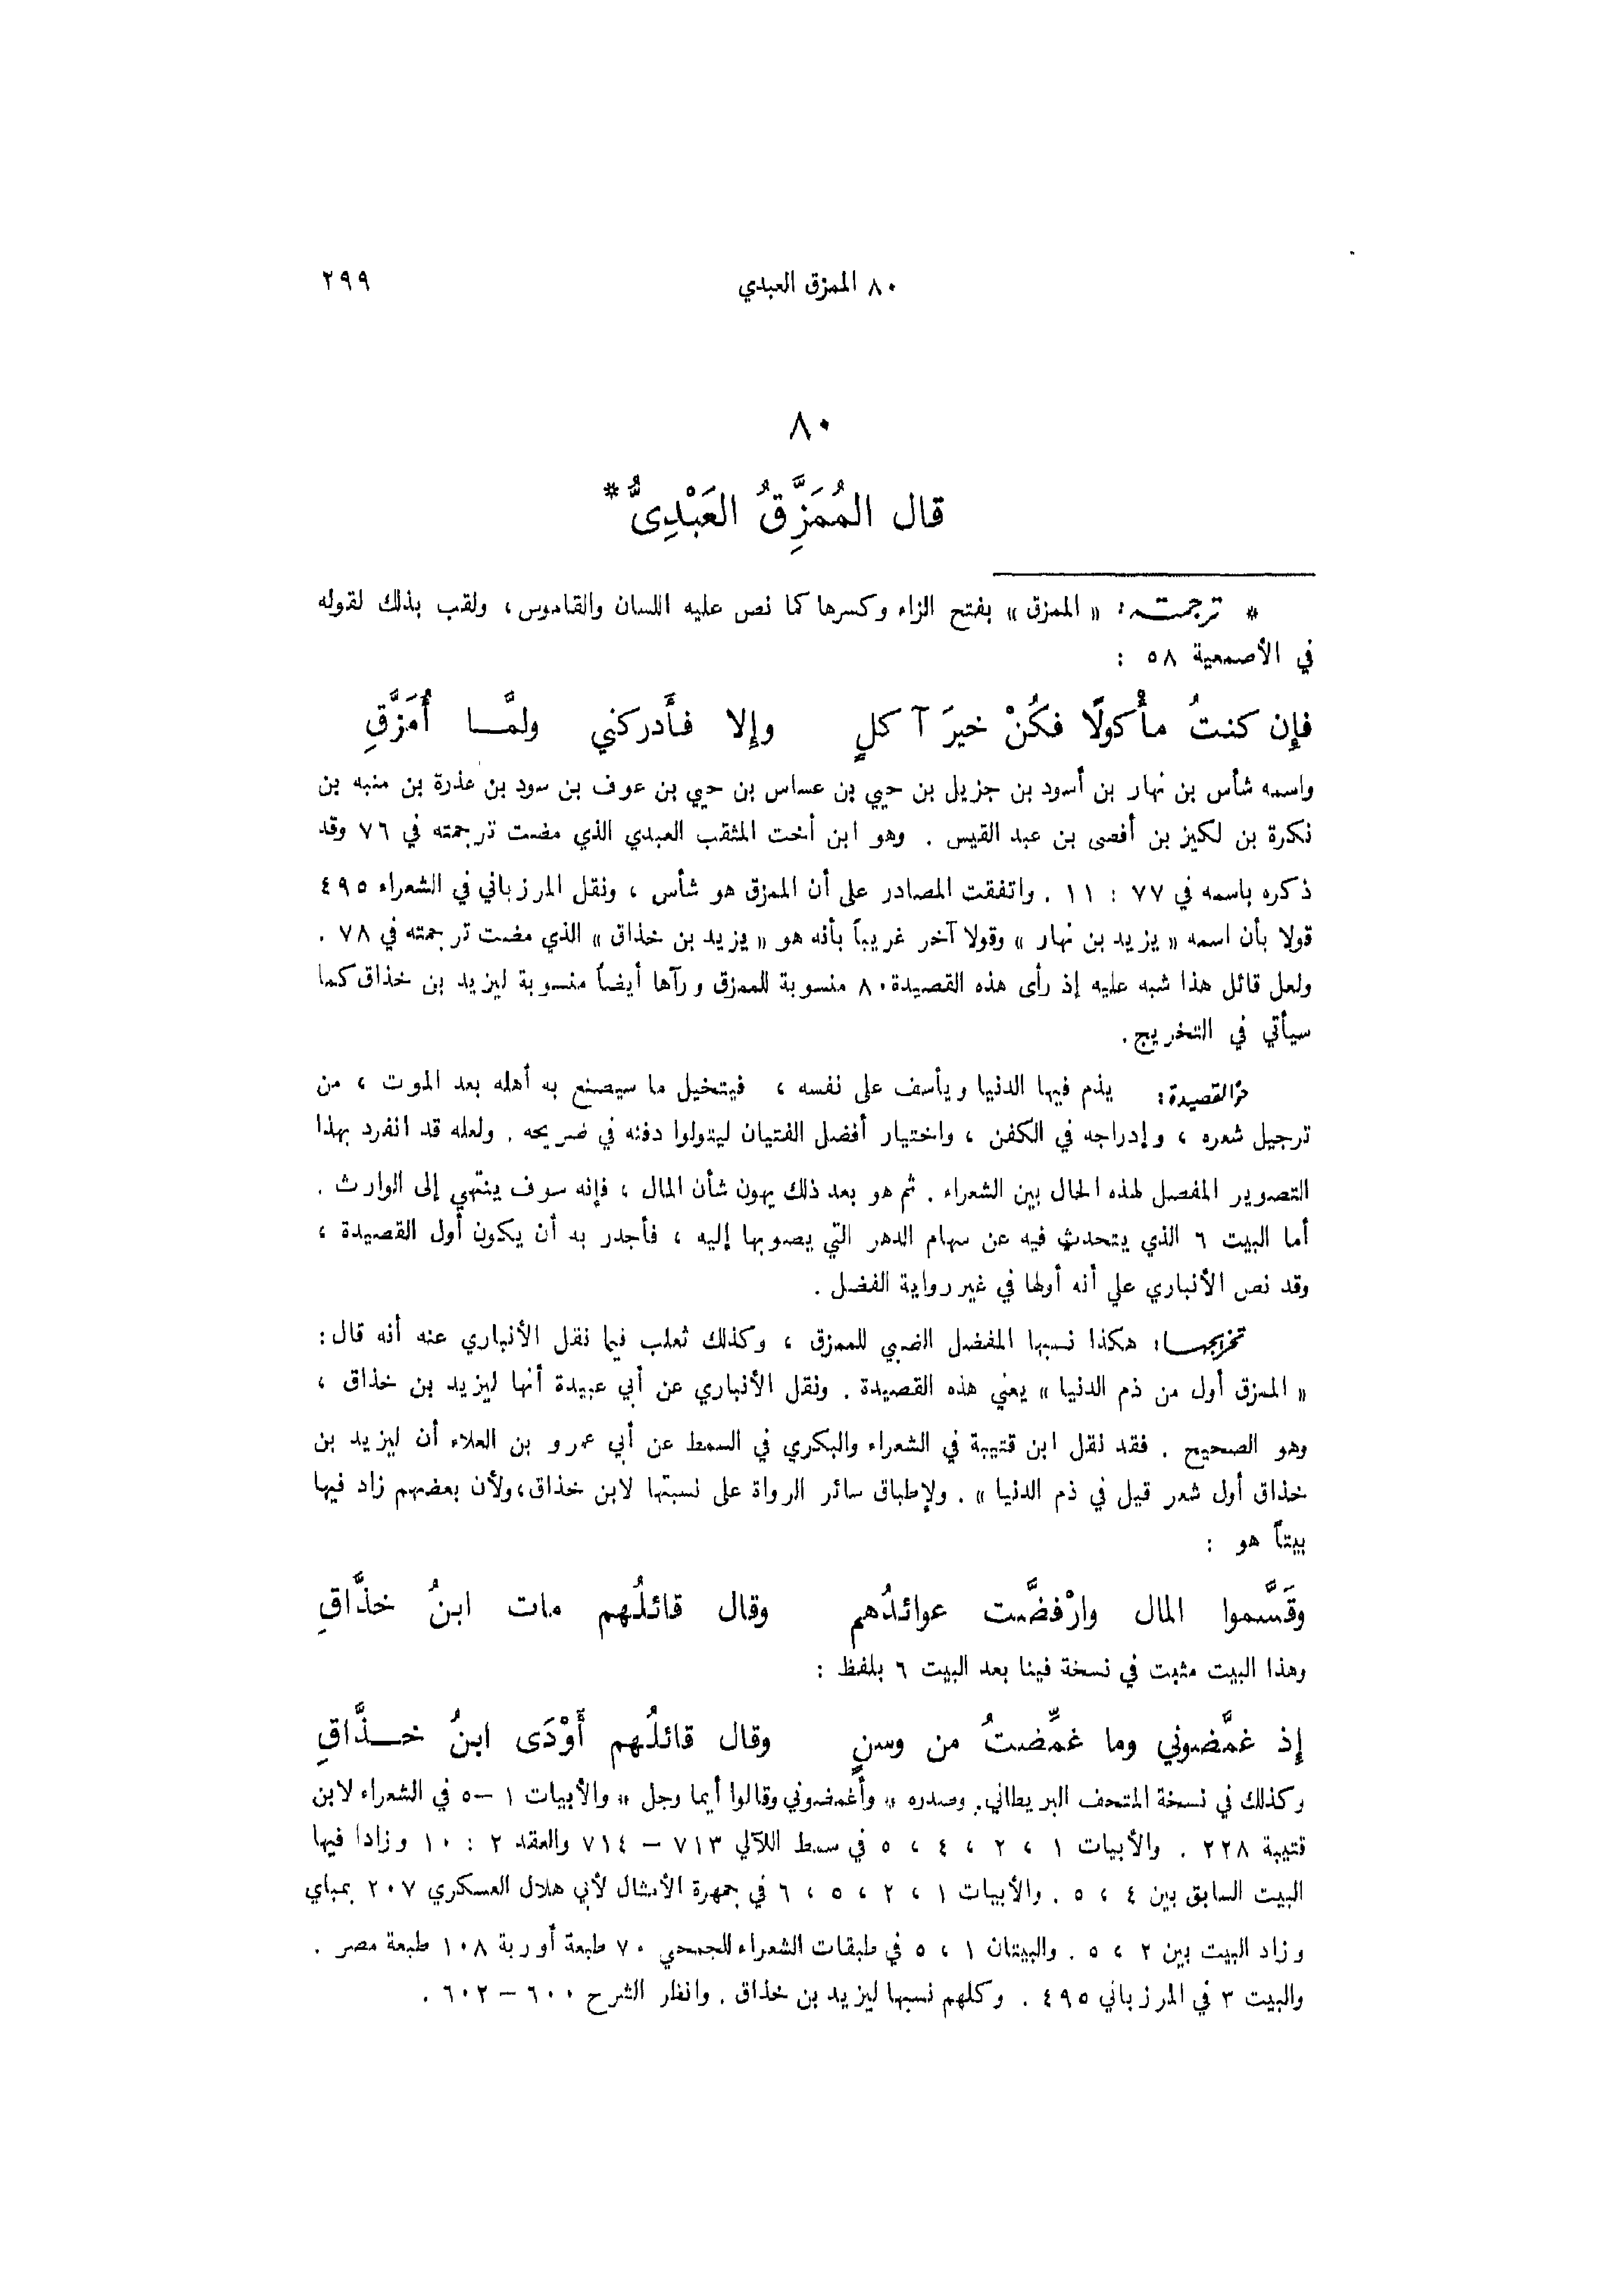 ٨٠ الممزق العبدي
٢٩٩
٨٠
قال المُمَزَّقُِ العَبْدِىُّ *
* ترجمته: « الممزق » بفتح الزاء وكسرها كما نص عليه اللسان والقاموس، ولقب بذلك لقوله
في الأصمعية ٥٨ :
فإِن كنتُ مأْكولًا فكُنْ خيرَ آكلٍ وإِلا فأَدركني ولمَّا أُمَزَّقِ
واسمه شأس بن نهار بن أسود بن جزيل بن حيي بن عساس بن حيي بن عوف بن سود بن عذرة بن منبه بن
نكرة بن لكيز بن أفصى بن عبد القيس . وهو ابن أخت المثقب العبدي الذي مضت ترجمته في ٧٦ وقد
ذكره باسمه في ٧٧ : ١١ . واتفقت المصادر على أن الممزق هو شأس ، ونقل المرزباني في الشعراء ٤٩٥
قولا بأن اسمه « يزيد بن نهار » وقولا آخر غريباً بأنه هو « يزيد بن خذاق » الذي مضت ترجمته في ٧٨ .
ولعل قائل هذا شبه عليه إذ رأى هذه القصيدة ٨٠ منسوبة للممزق ورآها أيضاً منسوبة ليزيد بن خذاق كما
سيأتي في التخريج.
القصيدة: يذم فيها الدنيا ويأسف على نفسه ، فيتخيل ما سيصنع به أهله بعد الموت ، من
ترجيل شعره ، وإدراجه في الكفن ، واختيار أفضل الفتيان ليتولوا دفنه في ضريحه . ولعله قد انفرد بهذا
التصوير المفصل لهذه الحال بين الشعراء . ثم هو بعد ذلك يهون شأن المال ، فإنه سوف ينتهي إلى الوارث .
أما البيت ٦ الذي يتحدث فيه عن سهام الدهر التي يصوبها إليه ، فأجدر به أن يكون أول القصيدة ،
وقد نص الأنباري علي أنه أولها في غير رواية الفضل .
تخريجها: هكذا نسبها المفضل الضبي للممزق ، وكذلك ثعلب فيما نقل الأنباري عنه أنه قال:
« الممزق أول من ذم الدنيا » يعني هذه القصيدة . ونقل الأنباري عن أبي عبيدة أنها ليزيد بن خذاق ،
وهو الصحيح . فقد نقل ابن قتيبة في الشعراء والبكري في السمط عن أبي عمرو بن العلاء أن ليزيد بن
خذاق أول شعر قيل في ذم الدنيا » . ولإطباق سائر الرواة على نسبتها لابن خذاق،ولأن بعضهم زاد فيها
بيتاً هو :
وقَسَّموا المال وارْفضَّت عوائدُهم وقال قائلُهم مات ابنُ خذَّاقِ
وهذا البيت مثبت في نسخة فينا بعد البيت ٦ بلفظ :
إِذ غمَّضوني وما غمِّضتُ من وسنٍ وقال قائلُهم أَوْدَى ابنُ خذَّاقِ
وكذلك في نسخة المتحف البريطاني. وصدره « وأغمضوني وقالوا أيما رجل » والأبيات ١ –٥ في الشعراء لابن
قتيبة ٢٢٨ . والأبيات ١ ، ٢ ، ٤ ، ٥ في سمط اللآلي ٧١٣ – ٧١٤ والعقد ٢ : ١٠ وزادا فيها
البيت السابق بين ٤ ، ٥ . والأبيات ١ ، ٢ ، ٥ ، ٦ في جمهرة الأمثال لأبي هلال العسكري ٢٠٧ بمباي
وزاد البيت بين ٢ ، ٥ . والبيتان ١ ، ٥ في طبقات الشعراء للجمحي ٧٠ طبعة أوربة ١٠٨ طبعة مصر .
والبيت ٣ في المرزباني ٤٩٥ . وكلهم نسبها ليزيد بن خذاق . وانظر الشرح ٦٠٠ – ٦٠٢ .